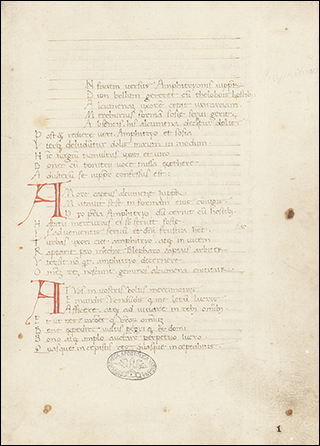 N faciem versus Amphitryonis iuppiť
D um bellum gereret cū thelobois hostib;
A lcumenam uxorē cepit usurariam
M ercurius formā sosię servi gerit
A bsentis his alcumena decipitur dolis
P ostq̃ rediere veri Amphitryo et sosia
V terq; deluduntur dolis mirum in modum
H inc iurgiū tumultus uxori et viro
D onec cū tonitru voce missa ex ęthere
A dulterū se iuppiť confessus est
A More captus alcumenę iuppiť
M utavit sese in formam eius coniugis
P ro patria Amphitryo dū cernit cū hostib;
H abitu mercurius ei subservit sosię
I s advenientis servum et dñm frustra habet
T urbas uxori ciet amphitryo atq; in vicem
R aptant pro moechis Blepharo captus arbiter
V ter sit nō q̃t amphitryo decernere
O mnē rē noscunt geminos alcumena enititur
A t vos in vostris voltis mercimoniis
E mundis vendūdisq; me letum lucris
A fficere atq; adiuvare in rebus omnib;
E t ut res rationesq; vrōrum omniū
B ene expedire voltis peregriq; et domi
B onoq; atq; amplo auctare perpetuo lucro
Q uasque incepistis res quasque inceptabitis
1